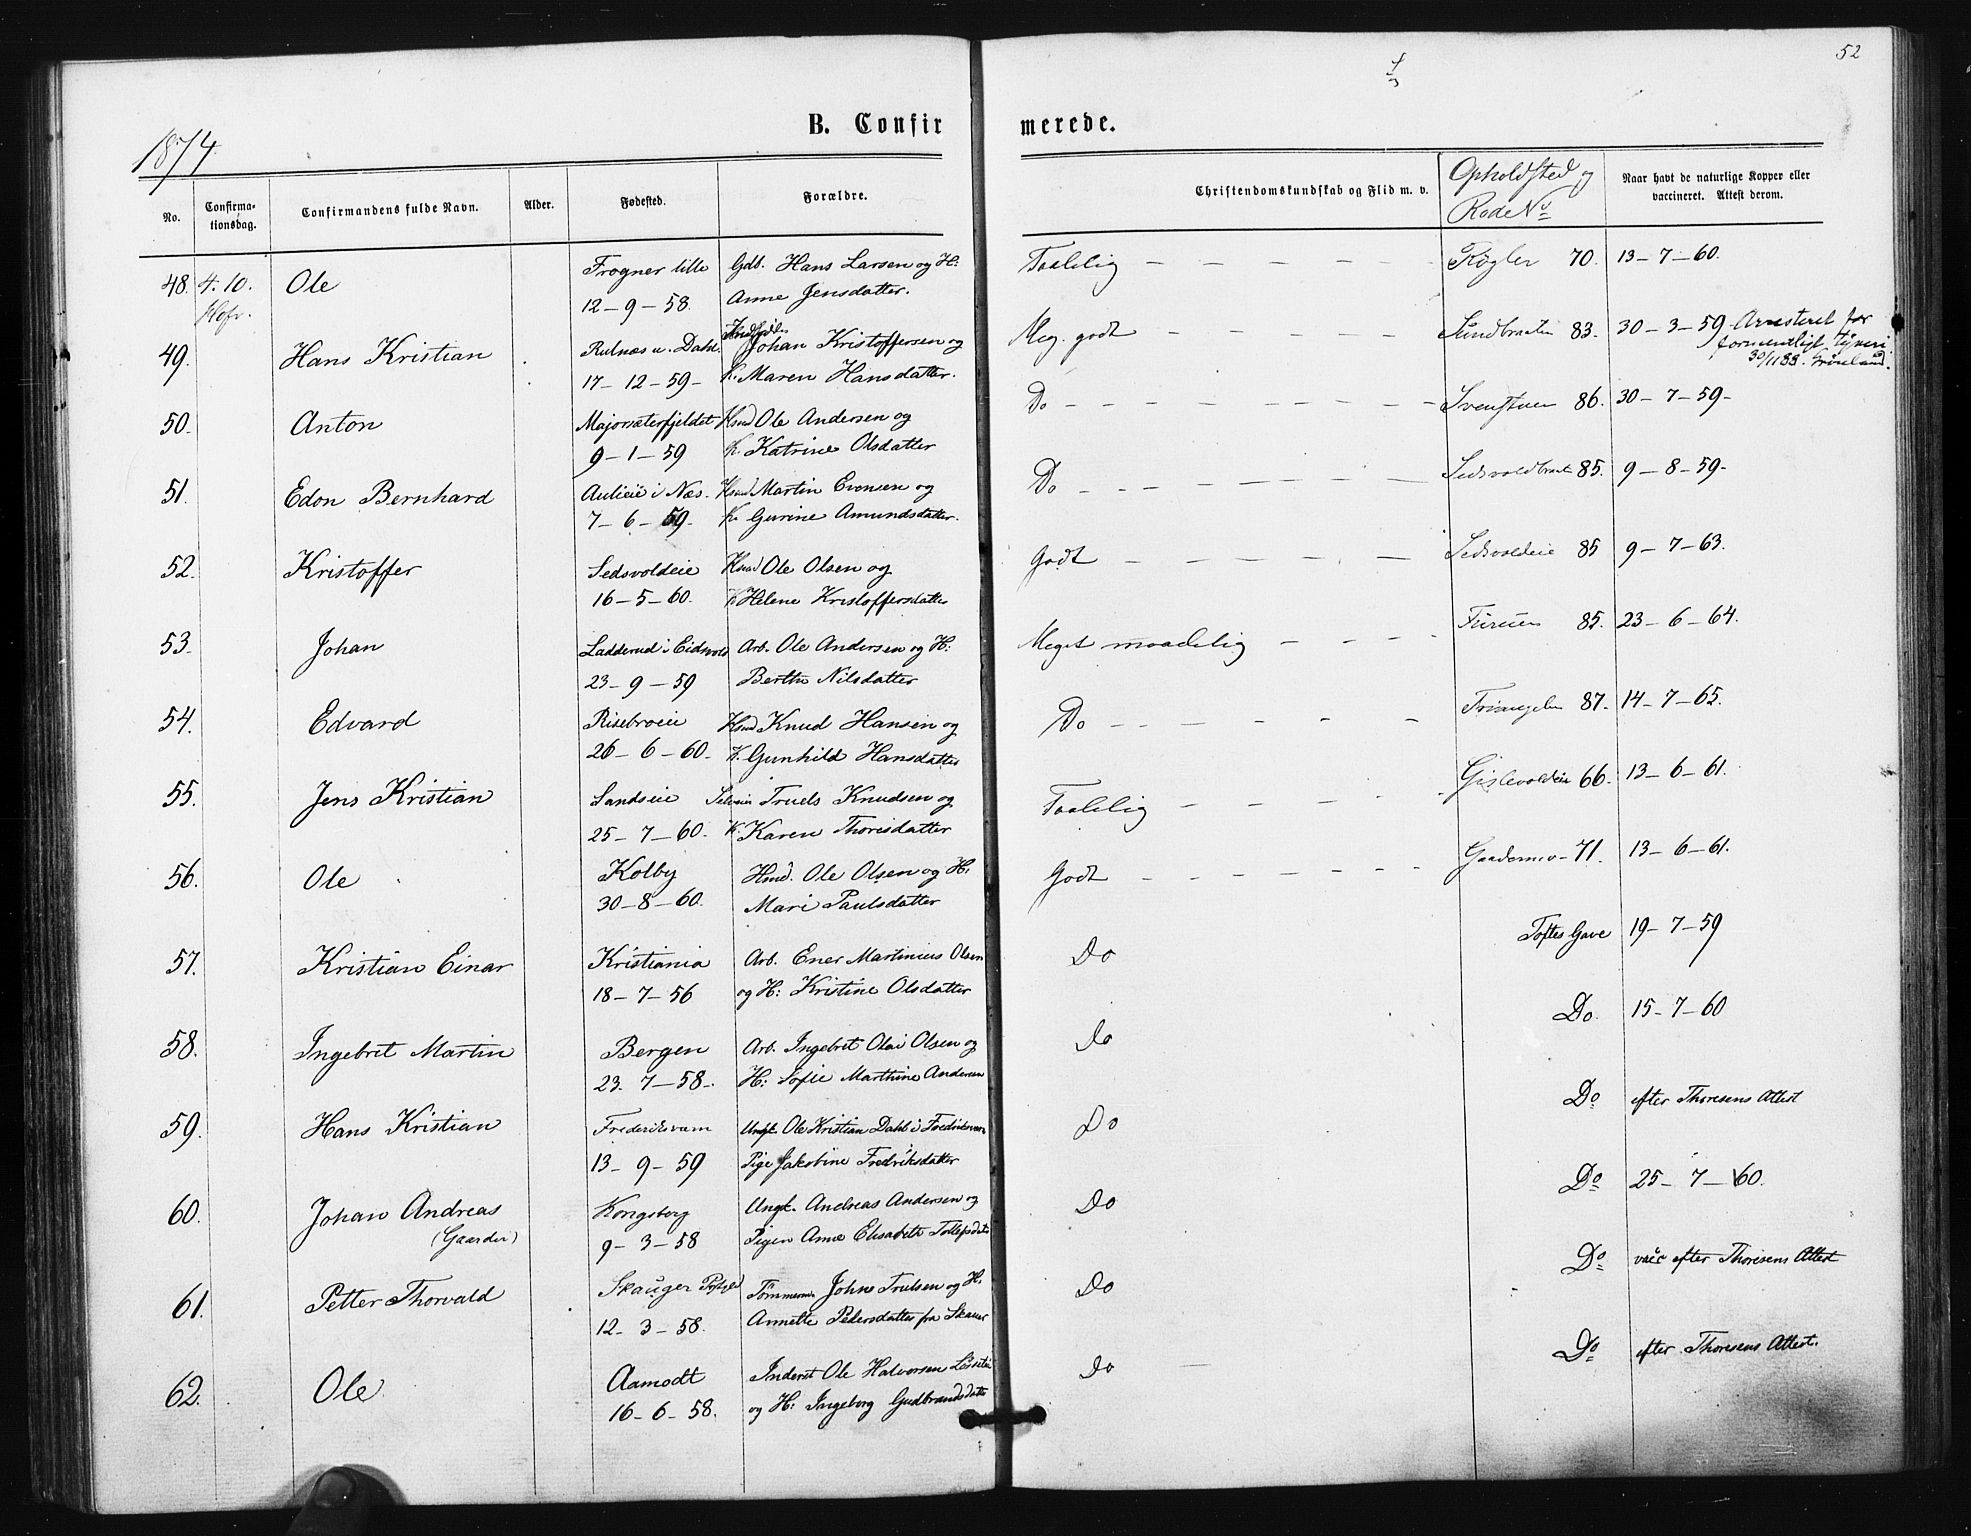 52
B. Confirmerede.
1874
No.
Confirmationsdag.
Confirmandens fulde Navn.
Alder.
Fødested.
Forældre.
Christendomskundskab og Flid m. v.
Opholdsted og Rode No
Naar havt de naturlige Kopper eller vaccineret. Attest derom.
48. 4. 10. Ole Frogner lille Gdb. Hans Larsen og H: Taalelig Kogler 70. 13-7-60.
12-9-58. Anne Jensdatter.
49. Hans Kristian Rulnæs u. Dahl. Johan Kristoffersen og Meg. godt Sundbraaten 83. 30-3-59 Arresteret for
formentligt Tyveri
30/11 88. Grønland.
17-12-59- K. Maren Hansdatter.
50. Anton Majorsæterfjeldet Hmd Ole Andersen og Do Svenstuen 86. 30-7-59-
9-1-59 K. Katrine Olsdatter
51. Edon Bernhard Aulieie i Næs. Hmd Martin Evensen og Do 85. 9-8-59-
7-6-59- K. Gurine Amundsdatter.
52. Kristoffer Sedsvoldeie Hmd Ole Olsen og Godt Sedsvoldeie 85 9-7-63.
16-5-60. K Helene Kristoffersdatter
53. Johan Ladderud i Eidsvold Arb. Ole Andersen og H: Meget maadelig Furuen 85. 23-6-64.
23-9-59 Berthe Nilsdatter
54. Edvard Risebroeie Hmd Knud Hansen og Do Triangelen 87. 14-7-65.
26-6-60. K. Gunhild Hansdatter
55. Jens Kristian Sandseie Truels Knudsen og Taalelig Gislevoldeie 66. 13-6-61.
25-7-60. K Karen Thorisdatter
56. Ole Kolby Hmd. Ole Olsen og H: Godt 71. 13-6-61.
30-8-60. Mari Paulsdatter
57. Kristian Einar Kristiania Arb. Ener Martinius Olsen Do Toftes Gave 19-7-59
18-7-56 og H: Kristine Olsdatter
58. Ingebret Martin Bergen Arb. Ingebret Olai Olsen og Do Do. 15-7-60
23. 7-58-. H: Sofie Marthine Andersen
59. Hans Kristian Frederiksværn Ungk. Ole Kristian Dahl i Fredriksværn Do Do efter Thoresens Attest
13-9-59 Pige Jakobine Fredriksdatter
60. Johan Andreas Kongsberg Ungk. Andreas Andersen og Do Do 25-7-60.
(Gaarder) 9-3-58 Pigen Anne Elisabeth Tollefsdatr
61. Petter Thorvald Skauger Tømmerm. Johns Trulsen og H: Do Do vacc efter Thoresens Attest
12-3-58. Annette Pedersdatter fra Skauer
62. Ole Aamodt Inderst Ole Halvorsen Do Do efter Thoresens Attest.
16-6-58. og H: Ingeborg Gudbrandsdatter